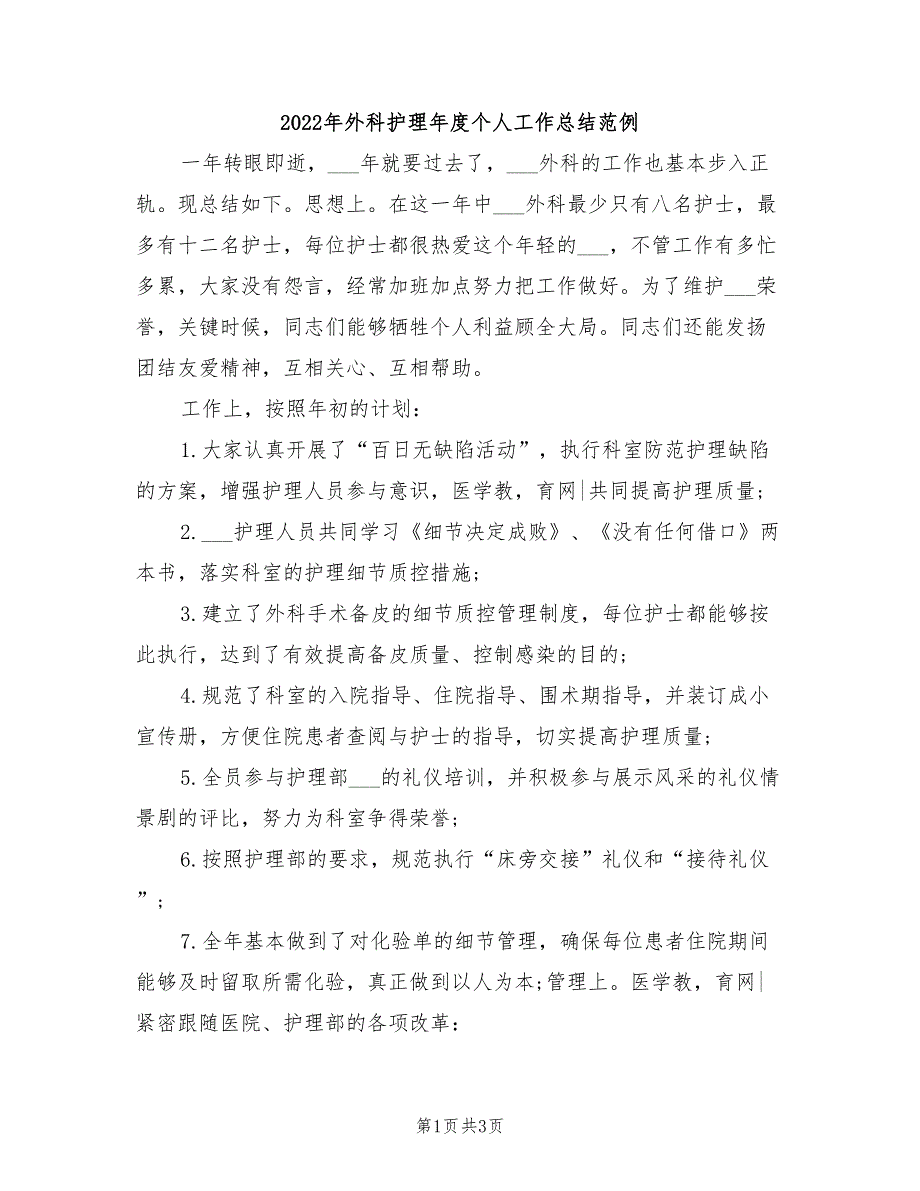 2022年外科护理年度个人工作总结范例
一年转眼即逝，___年就要过去了，___外科的工作也基本步入正
轨。现总结如下。思想上。在这一年中___外科最少只有八名护士，最
多有十二名护士，每位护士都很热爱这个年轻的___，不管工作有多忙
多累，大家没有怨言，经常加班加点努力把工作做好。为了维护___荣
誉，关键时候，同志们能够牺牲个人利益顾全大局。同志们还能发扬
团结友爱精神，互相关心、互相帮助。
工作上，按照年初的计划：
1.大家认真开展了“百日无缺陷活动”，执行科室防范护理缺陷
的方案，增强护理人员参与意识，医学教，育网|共同提高护理质量;
2.___护理人员共同学习《细节决定成败》、《没有任何借口》两
本书，落实科室的护理细节质控措施;
3.建立了外科手术备皮的细节质控管理制度，每位护士都能够按
此执行，达到了有效提高备皮质量、控制感染的目的;
4.规范了科室的入院指导、住院指导、围术期指导，并装订成小
宣传册，方便住院患者查阅与护士的指导，切实提高护理质量;
5.全员参与护理部___的礼仪培训，并积极参与展示风采的礼仪情
景剧的评比，努力为科室争得荣誉;
6.按照护理部的要求，规范执行“床旁交接”礼仪和“接待礼仪
”;
7.全年基本做到了对化验单的细节管理，确保每位患者住院期间
能够及时留取所需化验，真正做到以人为本;管理上。医学教，育网|
紧密跟随医院、护理部的各项改革：
第1页共3页